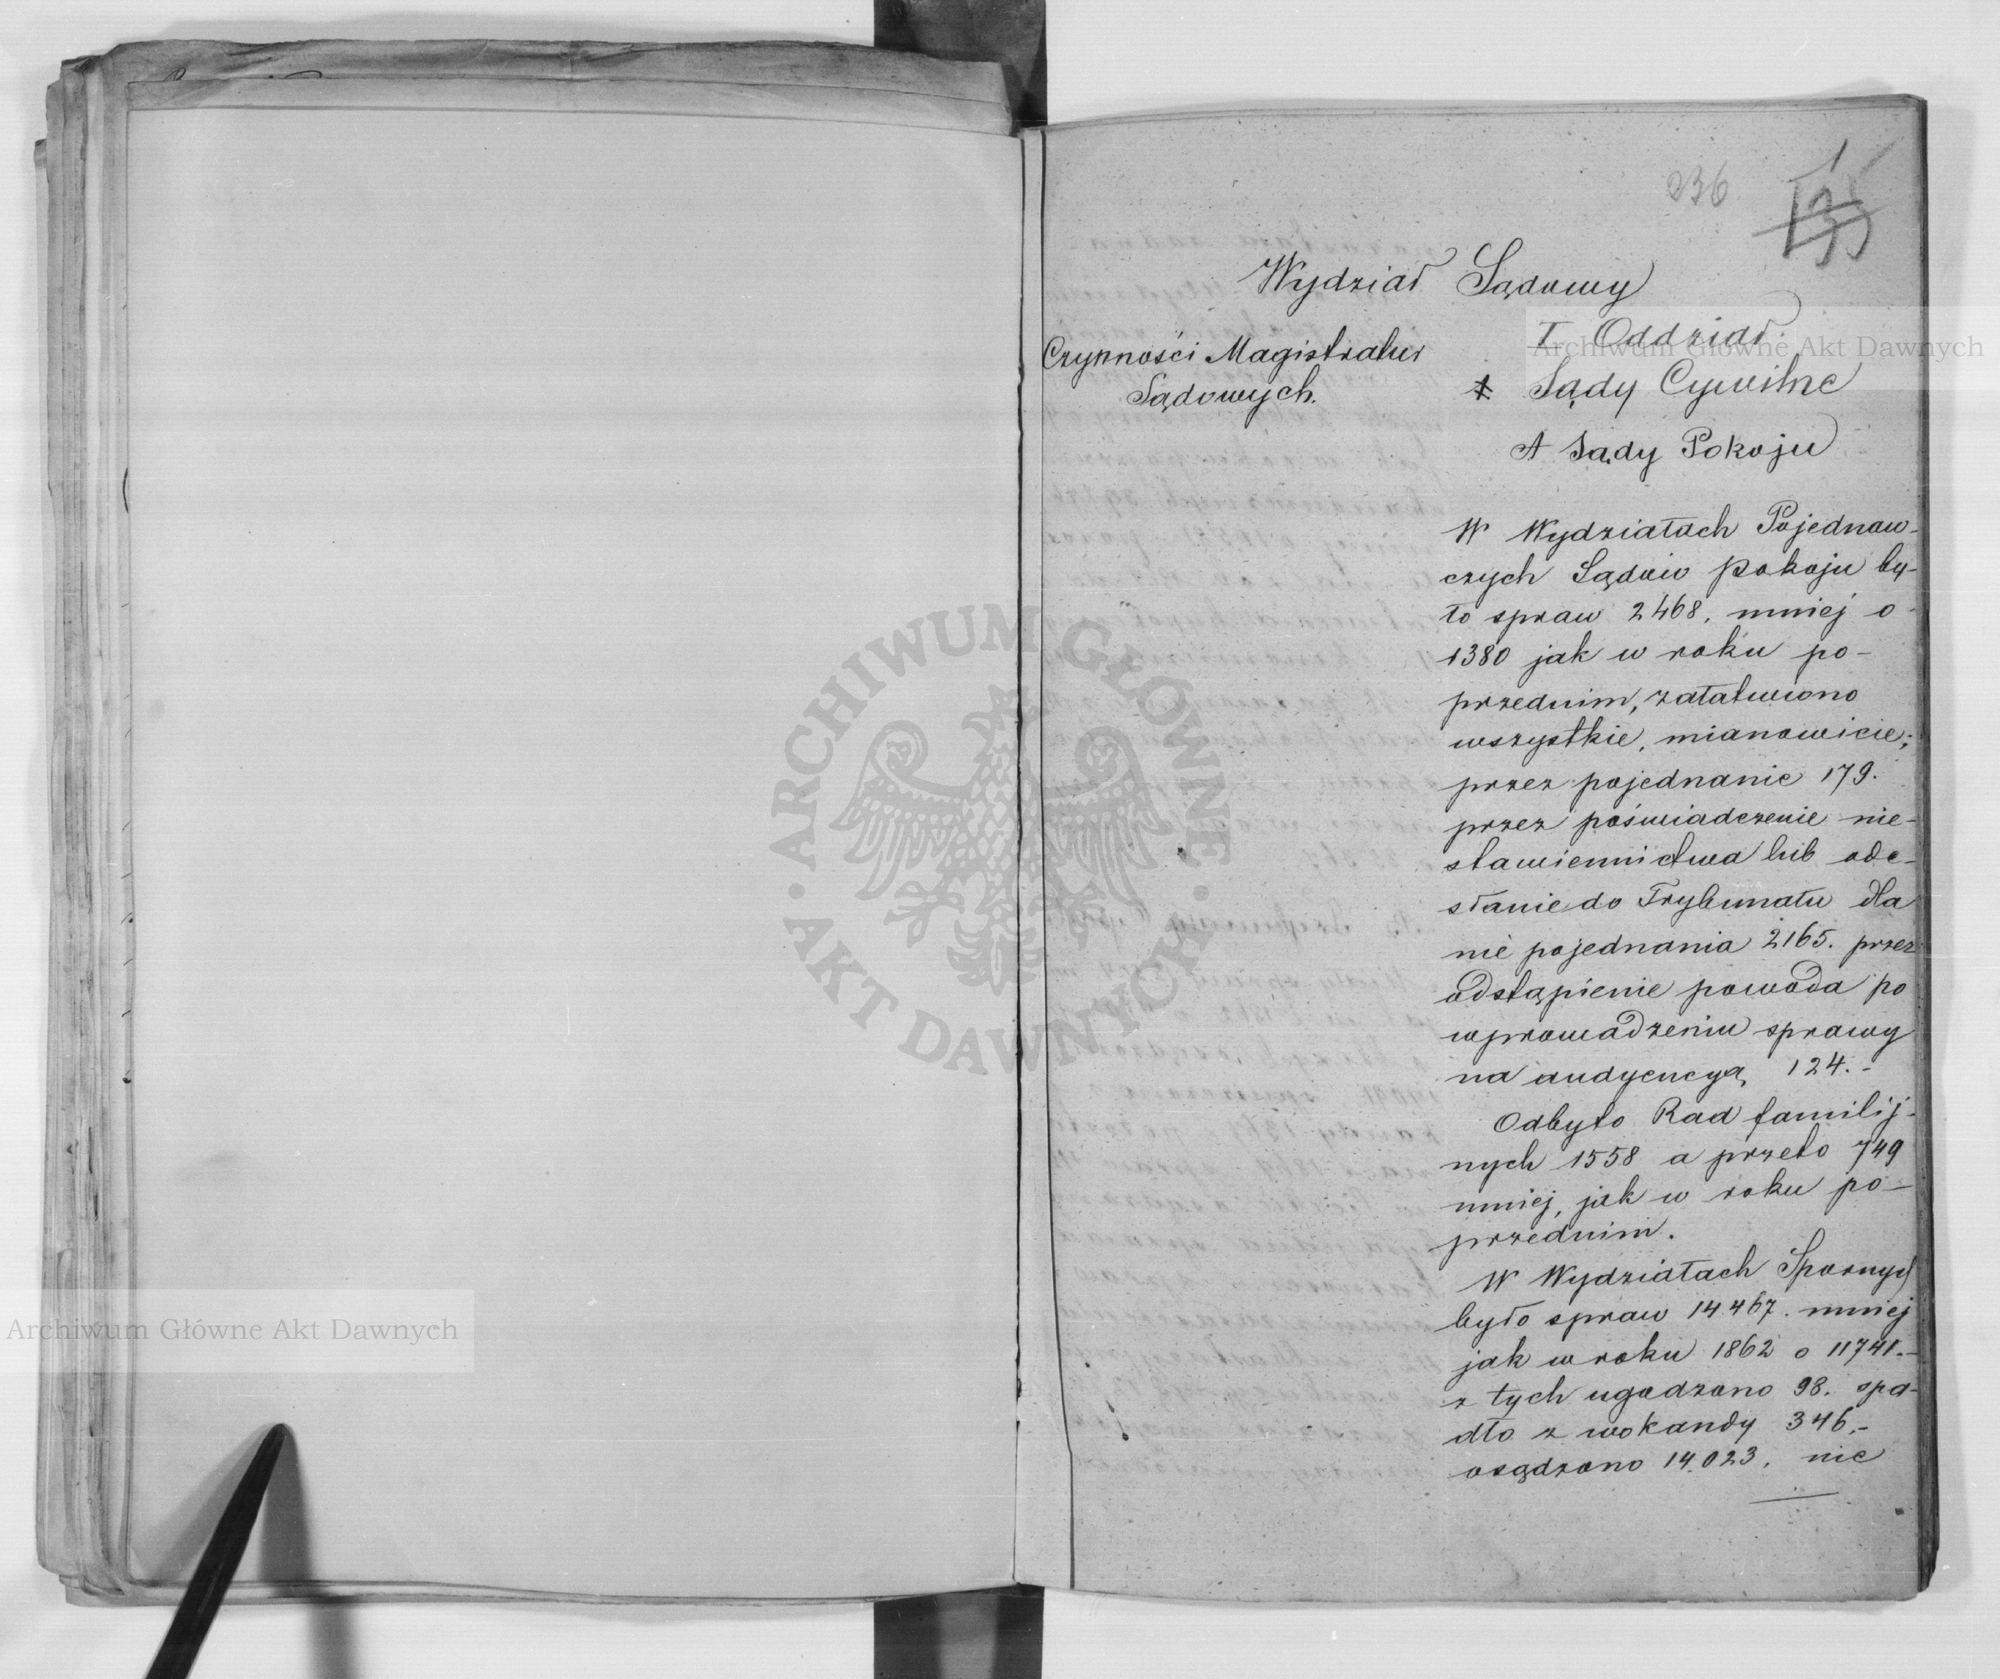 236
1
Wydział Sądowy
I Oddział
Czynności Magistratur
Sądowych.
Sądy Cywilne
A Sądy Pokoju
W Wydziałach Pojednaw-
czych Sądów Pokoju by-
ło spraw 2468. mniej o
1380 jak w roku po-
przednim, załatwiono
wszystkie, mianowicie;
przez pojednanie 179.
przez poświadczenie nie-
stawiennictwa lub ode-
słanie do Trybunału dla
nie pojednania 2165. przez
odstąpienie powoda po
wprowadzeniu sprawy
na audyencyą 124.-
Odbyto Rad familij-
nych 1558 a przeto 749
mniej, jak w roku po-
przednim.
W Wydziałach Spornych
było spraw 14467. mniej
jak w roku 1862 o 11741.-
z tych ugodzono 98. spa-
dło z wokandy 346.-
osądzono 14.023. nie
Archiwum Główne Akt Dawnych
Archiwum Główne Akt Dawnych
ARCHIWUM GŁÓWNE
· AKT DAWNYCH ·